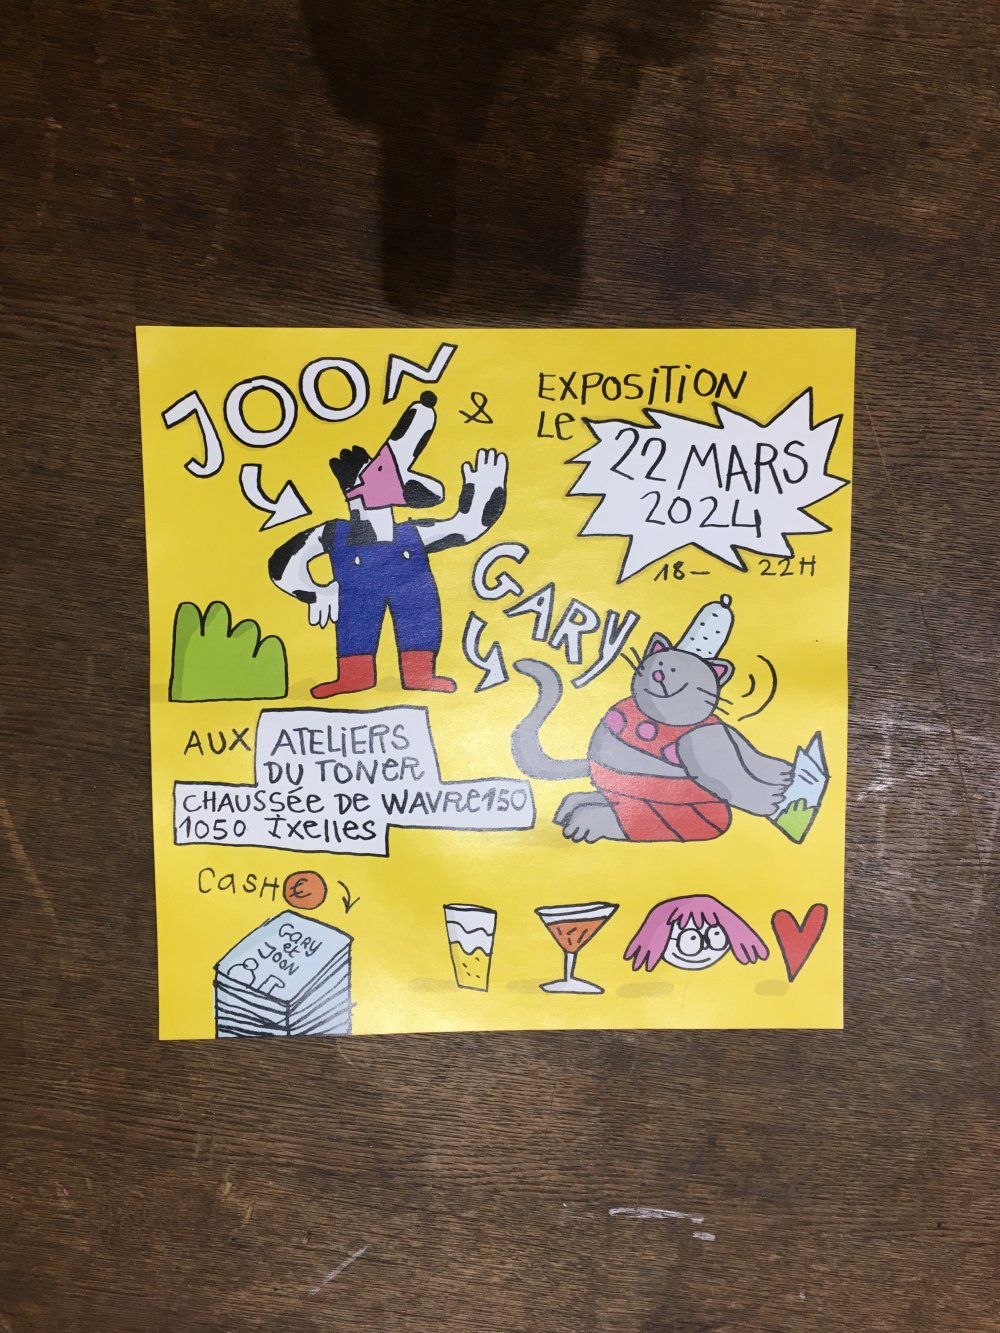 JOON
&
GARY
EXPOSITION
LE
22 MARS
2024
18— 22H
AUX ATELIERS
DU TONER
CHAUSSÉE DE WAVRE 150
1050 IXelles
CASH €
GARY
et
JOON